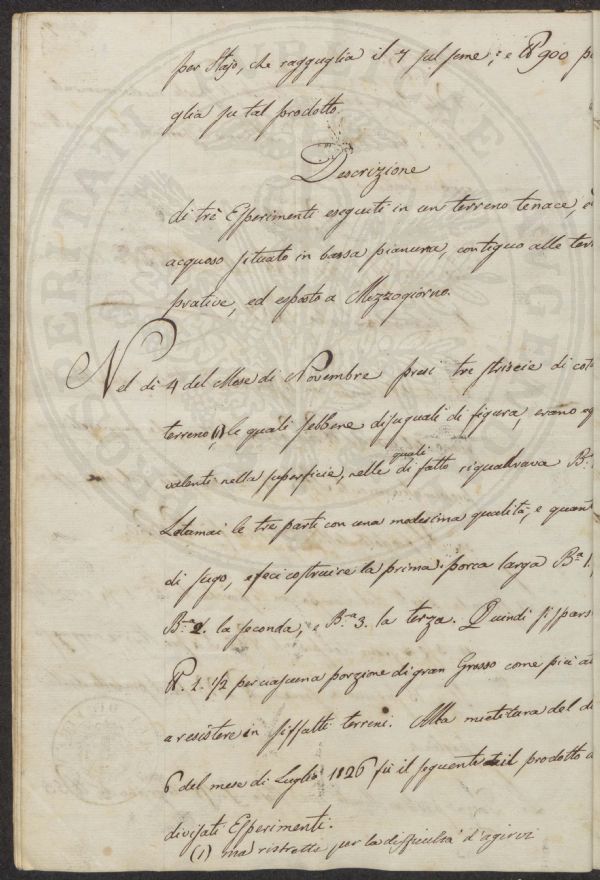 per Stajo, che ragguglia il 7 sul seme; e ℔ 900 p
glia su tal prodotto.
Descrizione
di trè Esperimenti eseguiti in un terreno tenace,
acquoso situato in bassa pianura, contiguo alle terr
prative, ed esposto a Mezzogiorno.
Nel di 4 del Mese di Novembre presi tre striscie di cot
terreno, (1) le quali sebbene disuguali di figura, erano eq
valenti nella superficie, nelle quali di fatto riqualivava B.ª
Letamai le tre parti con una medesima qualità, e quan
di sugo, e feci costruire la prima porca larga B.ª 1.
B.ª 2. la seconda, e B.ª 3. la terza. Quindi si spars
℔. 2. 1/2 per ciascuna porzione di gran Grosso come più a
a resistere in siffatti terreni. Alla mietitura del di
6 del mese di Luglio 1826 fù il seguente il prodotto
divisati Esperimenti.
(1) ma ristrette per la difficoltà d'agirvi